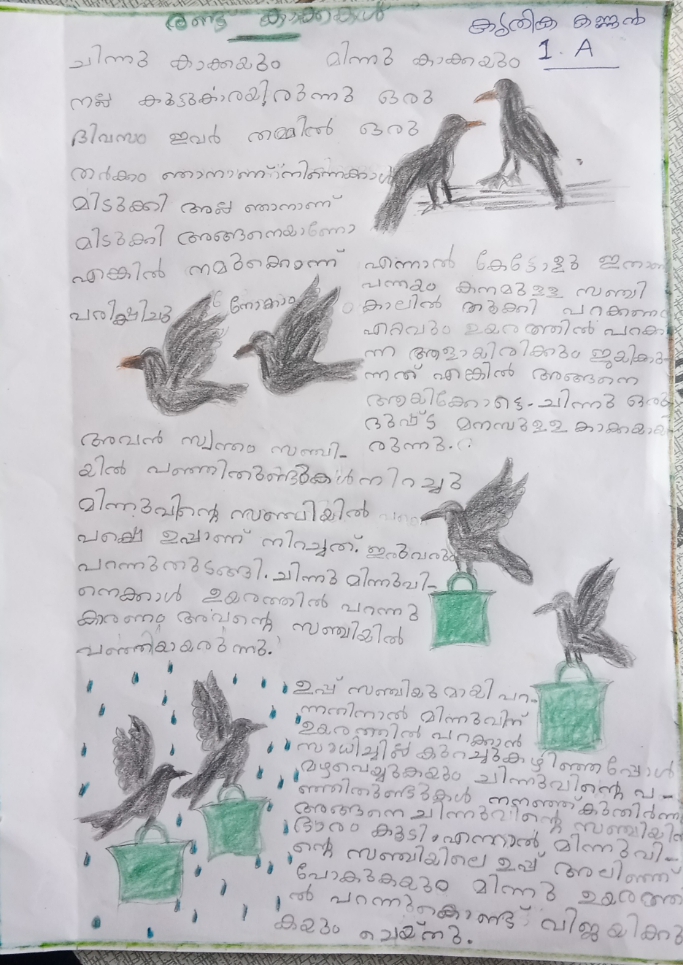 രണ്ട് കാക്കകൾ
കൃതിക കണ്ണൻ
1. A
ചിന്നു കാക്കയും മിന്നു കാക്കയും
നല്ല കൂട്ടുകാരായിരുന്നു ഒരു
ദിവസം ഇവർ തമ്മിൽ ഒരു
തർക്കം ഞാനാണ് നിന്നെകാൾ
മിടുക്കി അല്ല ഞാനാണ്
മിടുക്കി അങ്ങനെയാണോ
എങ്കിൽ നമുക്കൊന്ന്
പരിക്ഷിച്ചു നോക്കാം
എന്നാൽ കേട്ടോളു ഇതാണ്
പന്തയം കനമുള്ള സഞ്ചി
കാലിൽ തൂക്കി പറക്കണം
ഏറ്റവും ഉയരത്തിൽ പറക്കു
ന്ന ആളായിരിക്കും ജയിക്കു
ന്നത് എങ്കിൽ അങ്ങനെ
ആയിക്കോട്ടെ. ചിന്നു ഒരു
ദുഷ്ട മനസുള്ള കാക്കയായി
രുന്നു.
അവൻ സ്വന്തം സഞ്ചി-
യിൽ പഞ്ഞിതുണ്ടുകൾ നിറച്ചു
മിന്നുവിന്റെ സഞ്ചിയിൽ
പക്ഷെ ഉപ്പാണ് നിറച്ചത്. ഇരുവരും
പറന്നുതുടങ്ങി. ചിന്നു മിന്നുവി-
നെക്കാൾ ഉയരത്തിൽ പറന്നു
കാരണം അവന്റെ സഞ്ചിയിൽ
പഞ്ഞിയായരുന്നു.
ഉപ്പ് സഞ്ചിയുമായി പറ-
ന്നതിനാൽ മിന്നുവിന്
ഉയരത്തിൽ പറക്കാൻ
സാധിച്ചില്ല കുറച്ചുകഴിഞ്ഞപ്പോൾ
മഴപെയ്യുകയും ചിന്നുവിന്റെ പ-
ഞ്ഞിതുണ്ടുകൾ നനഞ്ഞ് കുതിർന്നു
അങ്ങനെ ചിന്നുവിന്റെ സഞ്ചിയിൽ
ഭാരം കൂടി. എന്നാൽ മിന്നുവി-
ന്റെ സഞ്ചിയിലെ ഉപ്പ് അലിഞ്ഞ്
പോകുകയും മിന്നു ഉയരത്തി
ൽ പറന്നുകൊണ്ട് വിജയിക്കു
കയും ചെയ്തു.